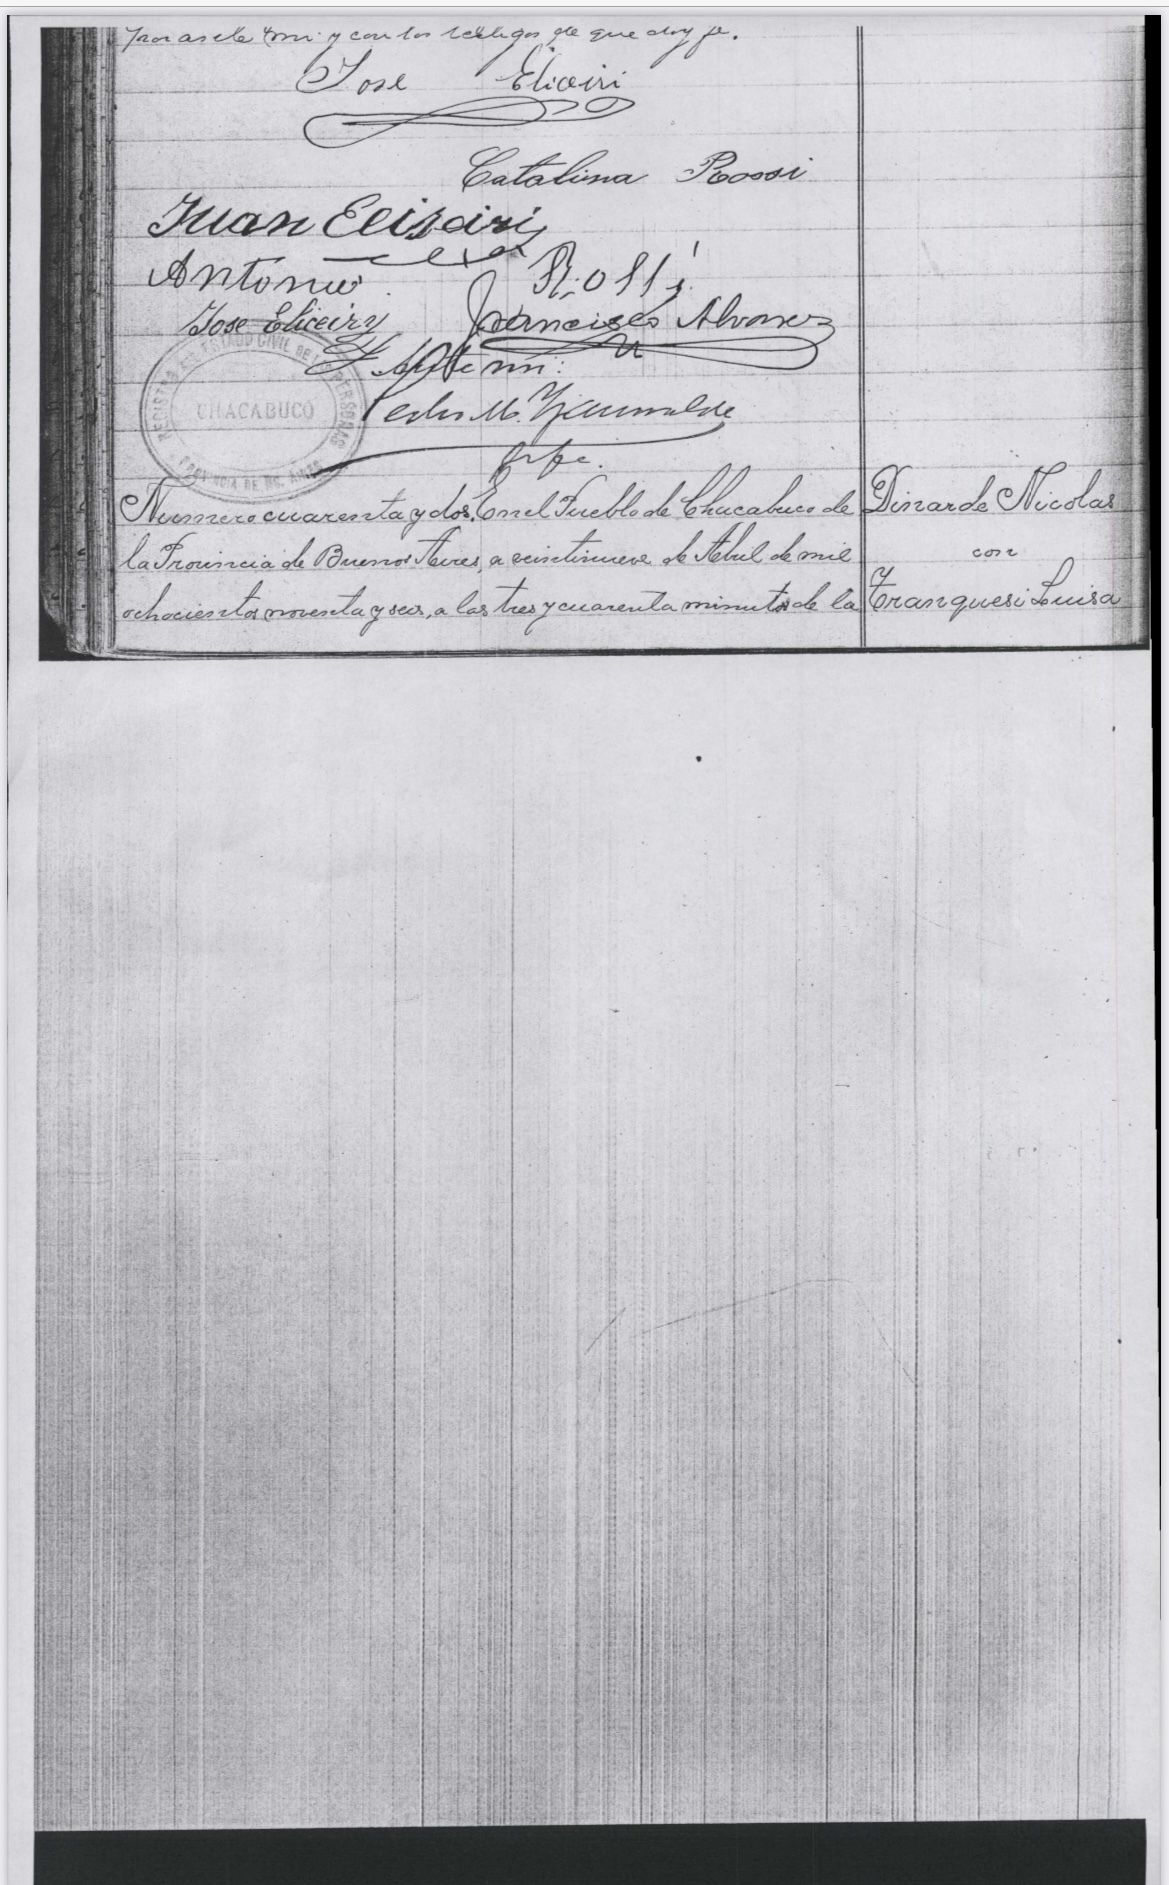 por ante mi y con los testigos de que doy fe.
Jose Eliceiri
Catalina Rossi
Juan Eliseiri
Antonio Rossi
Jose Eliceiry Francisco Alvarez
Ante mi:
Pedro M.
Jefe.
REGISTRO DE ESTADO CIVIL DE LAS PERSONAS
CHACABUCO
PROVINCIA DE BS. AIRES
Numero cuarenta y dos. En el Pueblo de Chacabuco de
la Provincia de Buenos Aires, a veintinueve de Abril de mil
ochocientos noventa y seis, a las tres y cuarenta minutos de la
Dinarde Nicolas
con
Tranquesi Luisa